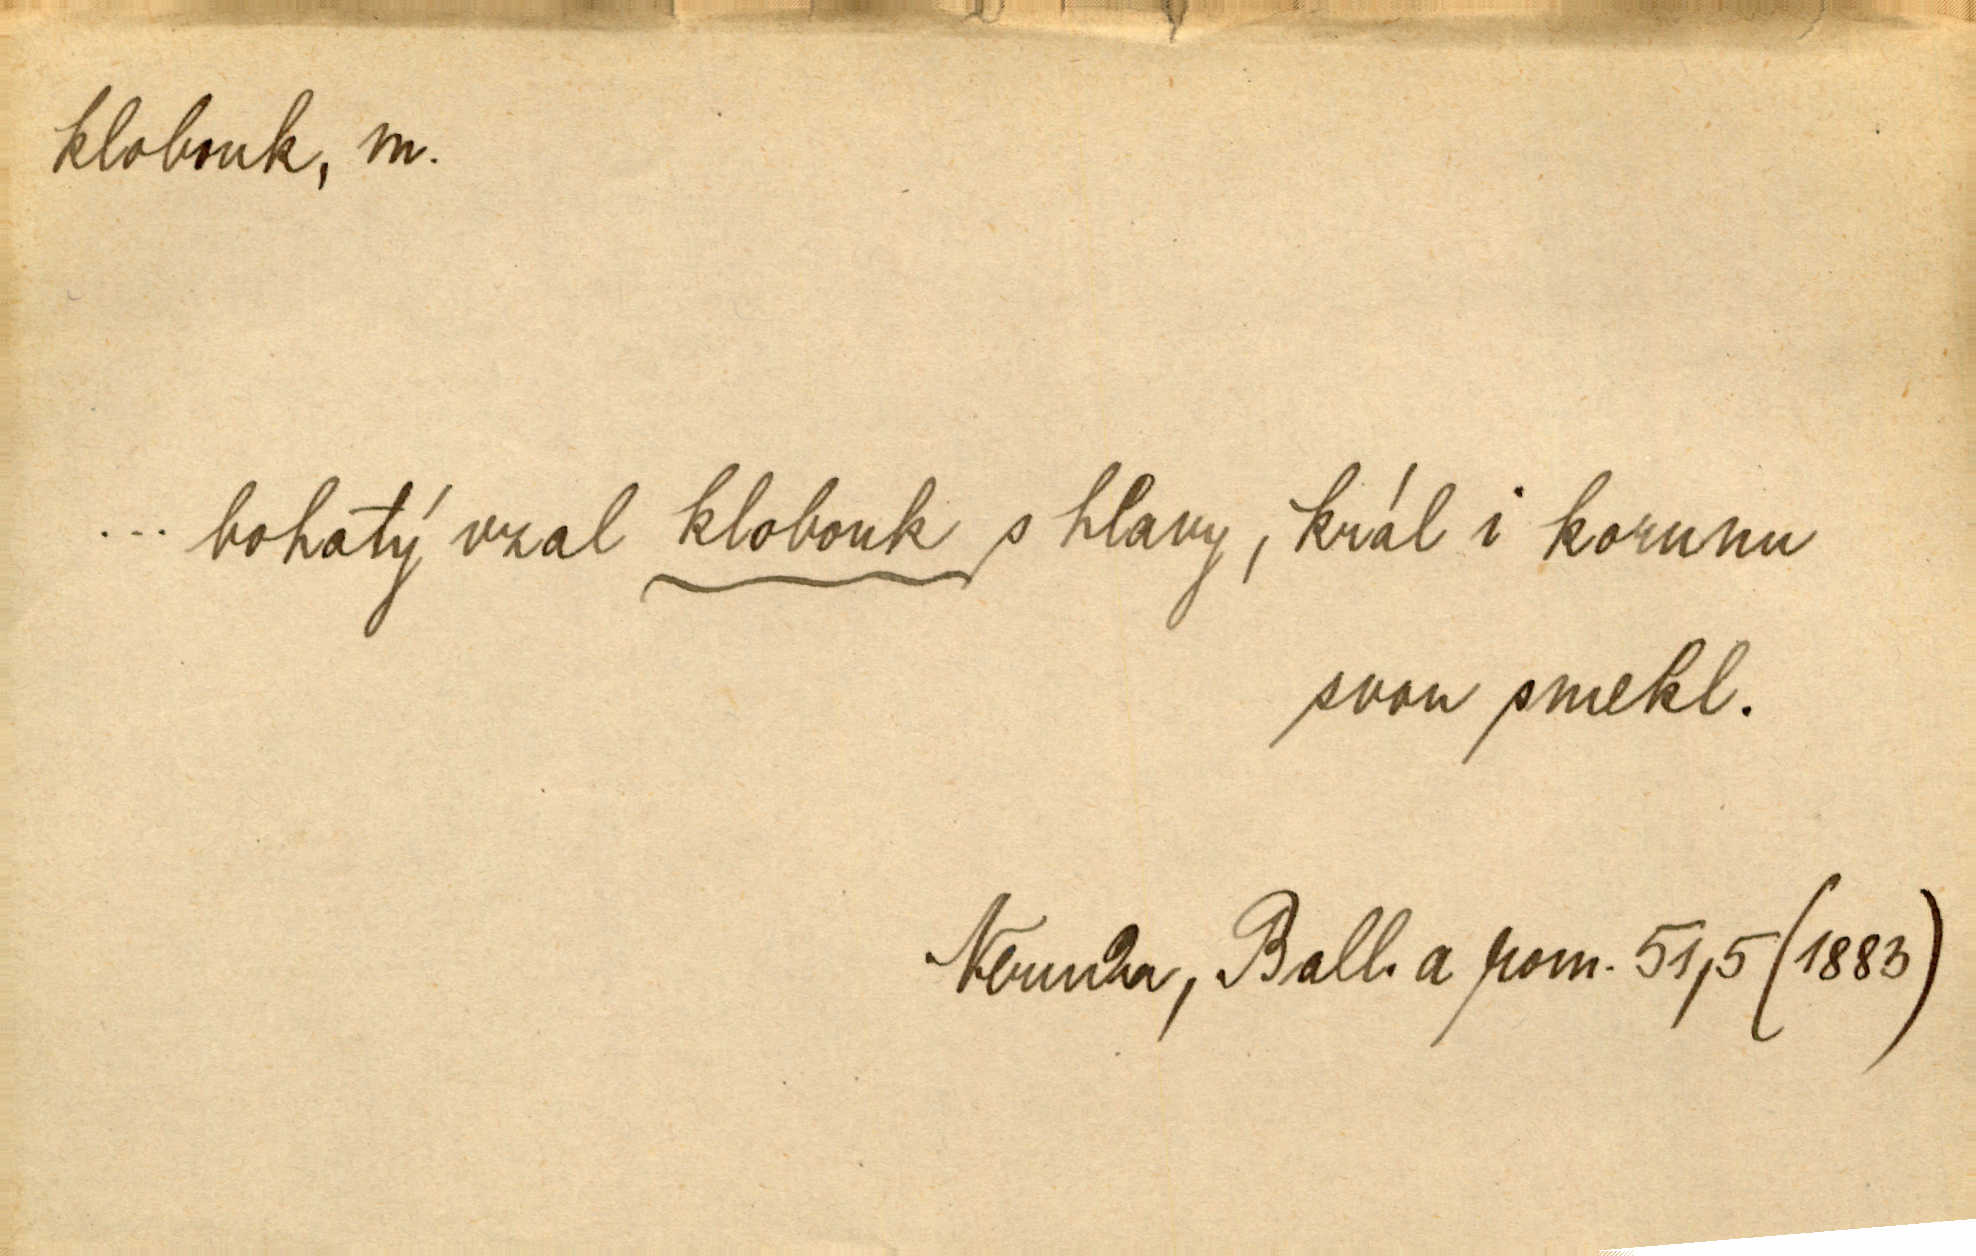 klobouk, m.
... bohatý vzal klobouk s hlavy, král i korunu
svou smekl.
Neruda, Ball. a rom. 51,5 (1883)